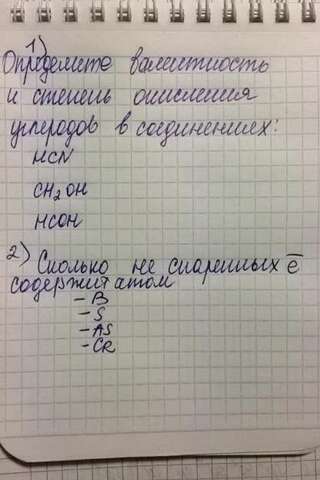 1)
Определите валентность
и степень окисления
углеродов в соединениях:
HCN
CH₂OH
HCOH
2) Сколько не спаренных ē
содержит атом
- B
- S
- AS
- CR